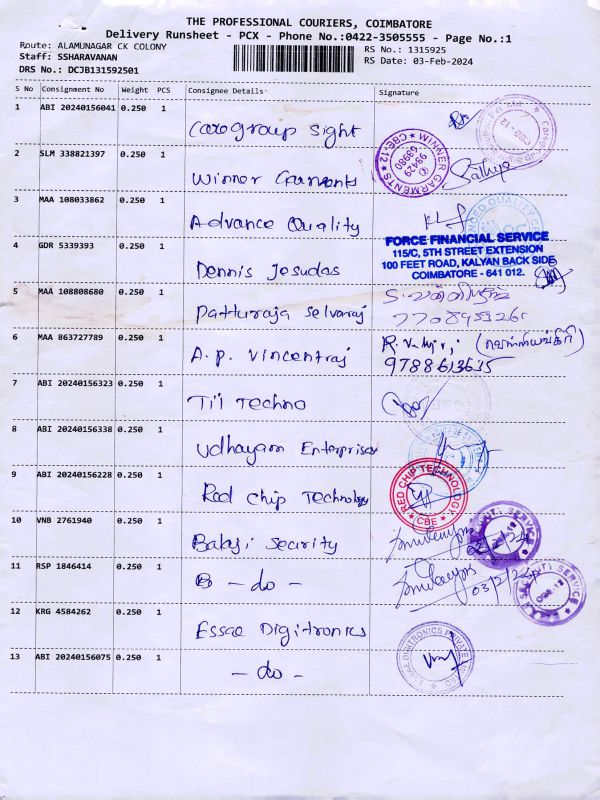 THE PROFESSIONAL COURIERS, COIMBATORE
Delivery Runsheet - PCX - Phone No.:0422-3505555 - Page No.:1
Route: ALAMUNAGAR CK COLONY
RS No.: 1315925
Staff: SSHARAVANAN
RS Date: 03-Feb-2024
DRS No.: DCJB131592501
S No Consignment No Weight PCS Consignee Details Signature
1 ABI 20240156041 0.250 1
Caregroup Sight
2 SLM 338821397 0.250 1
Winner Garments
WINNER GARMENTS CBE-12 98429 69980
Sathya
3 MAA 108033862 0.250 1
Advance Quality
4 GDR 5339393 0.250 1
Dennis Jesudas
FORCE FINANCIAL SERVICE
115/C, 5TH STREET EXTENSION
100 FEET ROAD, KALYAN BACK SIDE,
COIMBATORE - 641 012.
5 MAA 108808680 1
Patturaja Selvaraj
6 MAA 863727789 0.250 1
A.P. Vincentraj
9788613635
7 ABI 20240156323 0.250 1
TI'I Techno
8 ABI 20240156338 0.250 1
Udhayam Enterprises
9 ABI 20240156228 0.250 1
Red Chip Technology
RED CHIP TECHNOLOGY CBE
10 VNB 2761940 0.250 1
Balaji Security
11 RSP 1846414 0.250 1
- do -
03/2/24
12 KRG 4584262 0.250 1
Essae Digitronics
13 ABI 20240156075 0.250 1
- do -